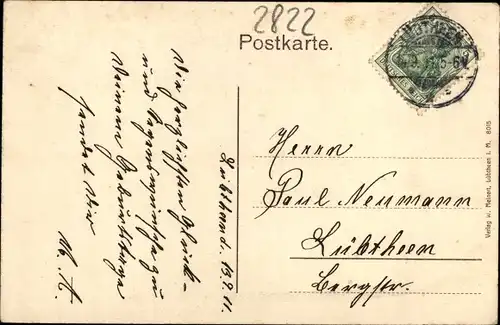 2822
Postkarte.
Die herzlichsten Glück-
und Segenswünsche zu
Deinem Geburtstage
sendet Dir
Lübtheen d. 13.9.11.
Herrn
Paul Neumann
Lübtheen
Bergstr.
Verlag v. Meinert, Lübtheen i. M. 8015